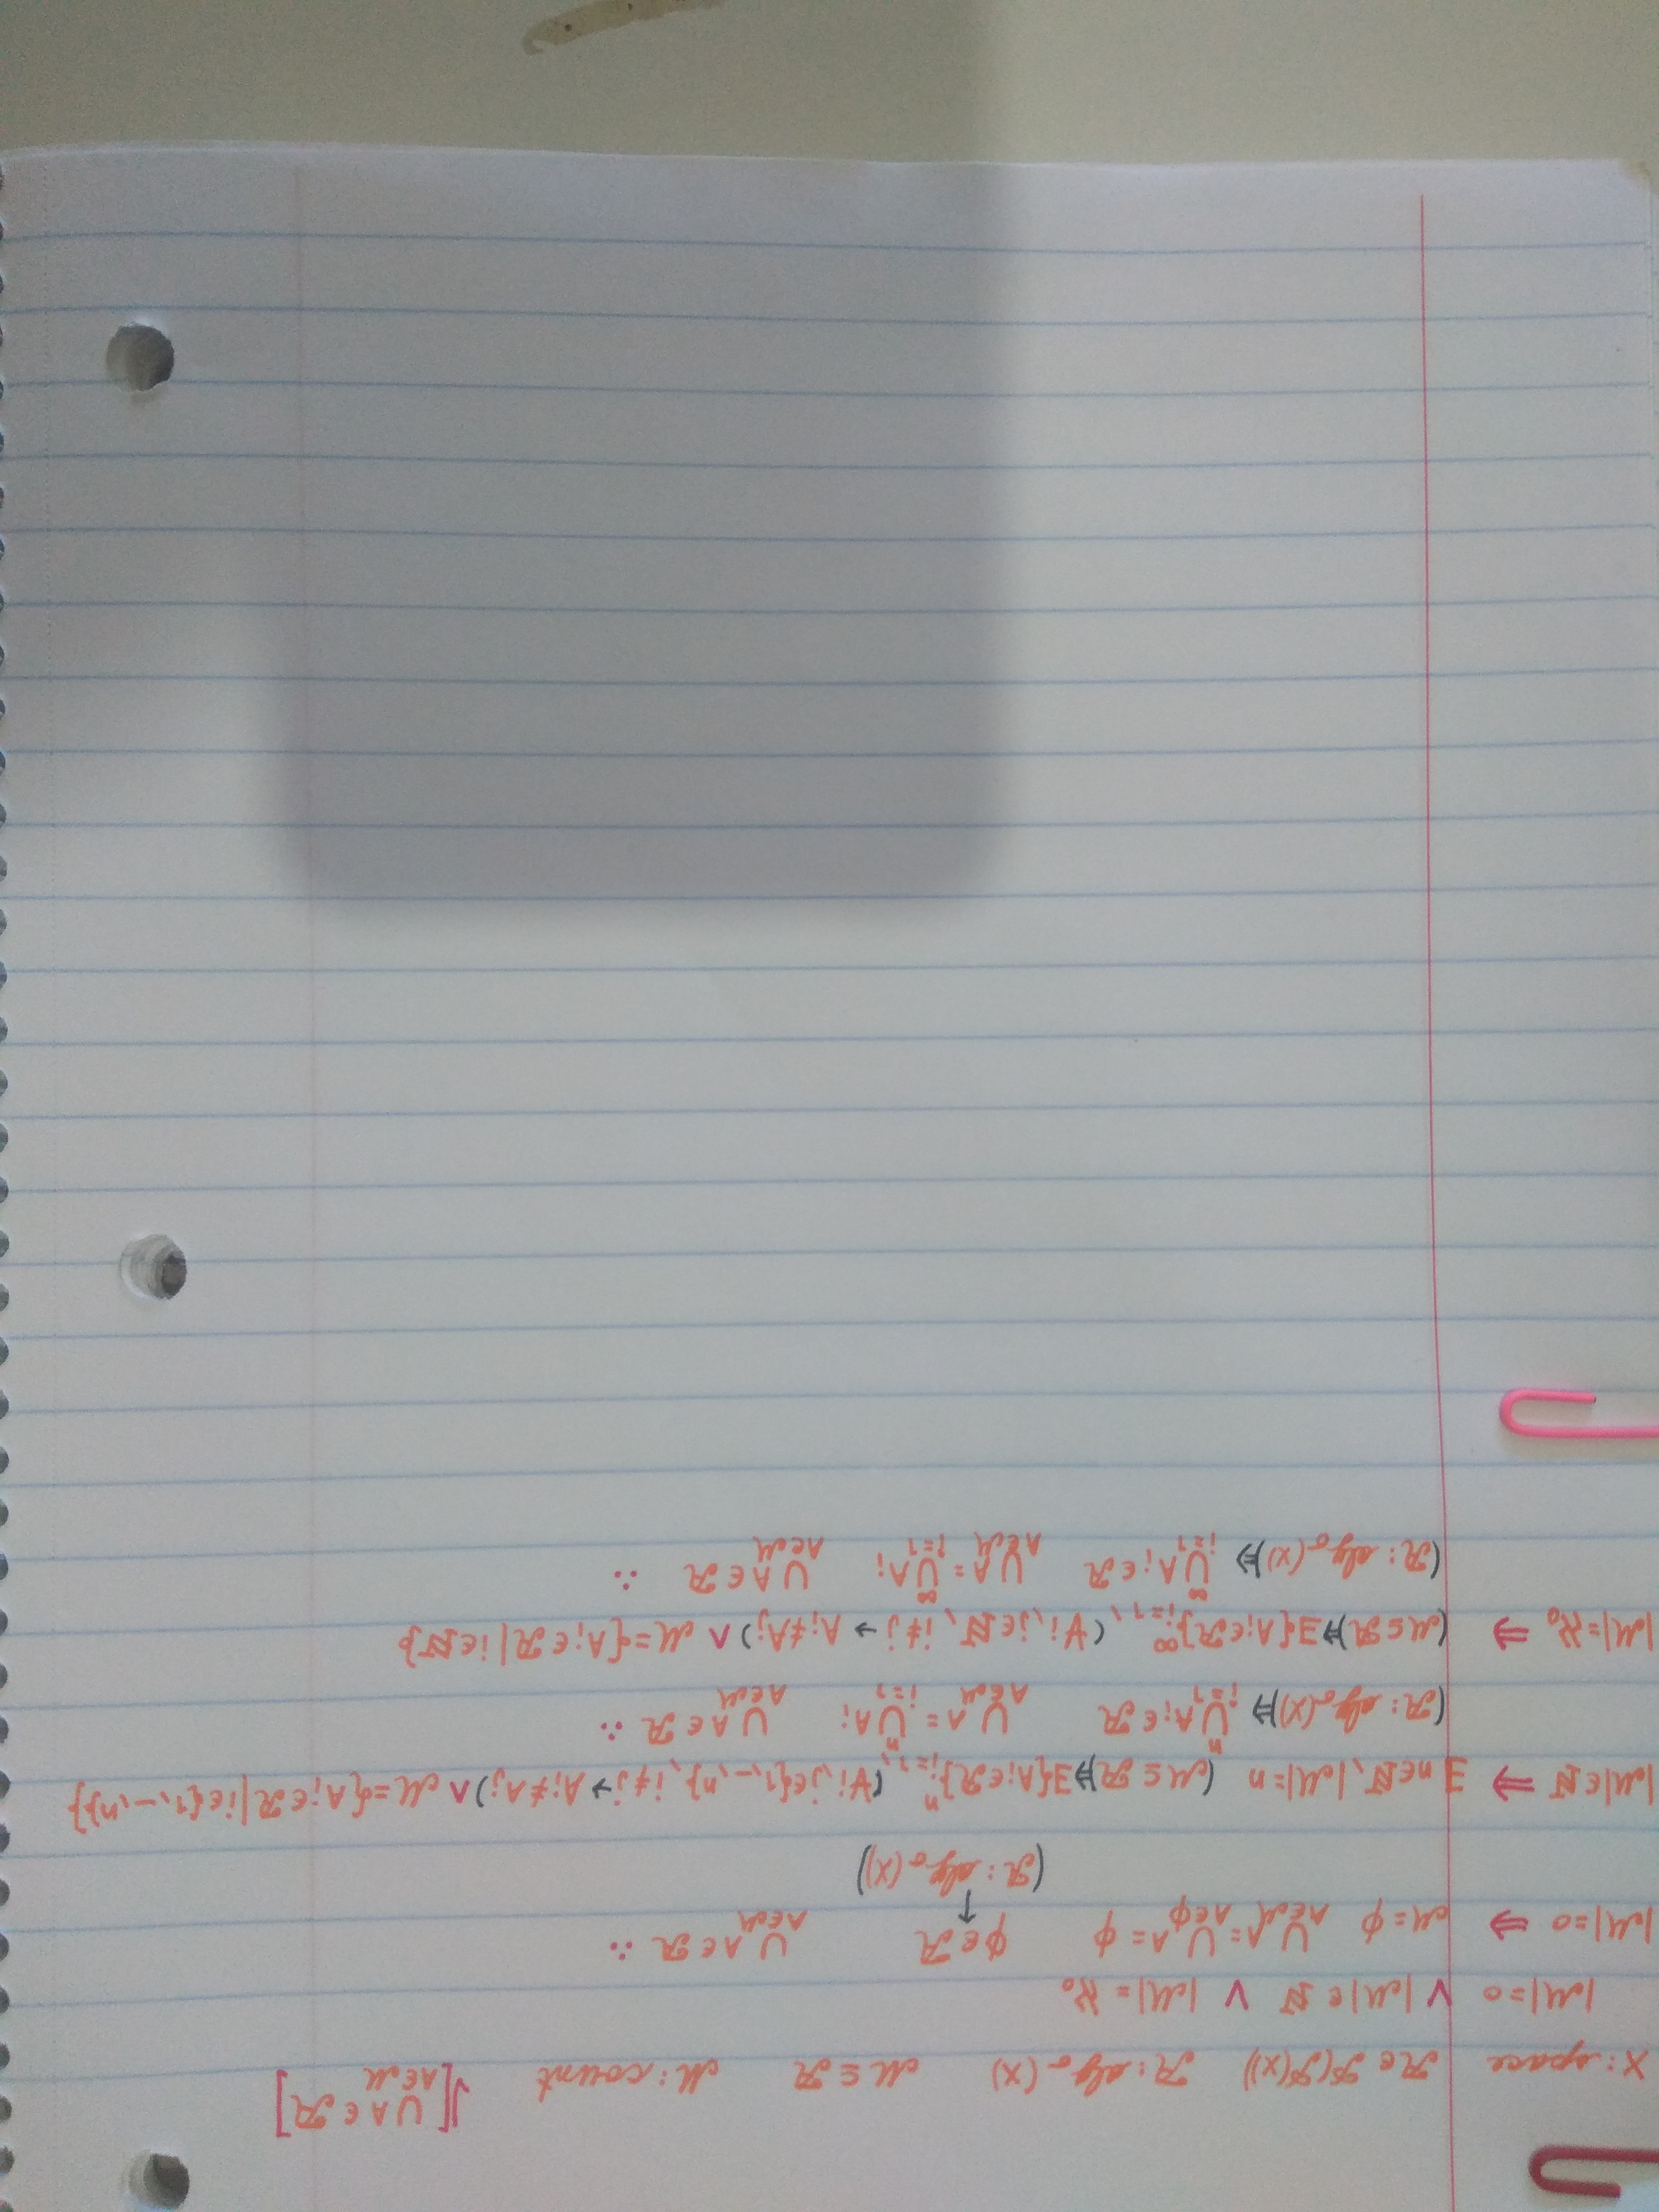 X: space 𝓡∈𝒫(𝒫(X)) 𝓡: alg_σ(X) 𝓜⊆𝓡 𝓜: count √[⋃_{A∈𝓜} A∈𝓡]
|𝓜|=0 ∨ |𝓜|∈ℕ ∨ |𝓜|=ℵ₀
|𝓜|=0 ⇒ 𝓜=φ ⋃_{A∈𝓜} A = ⋃_{A∈φ} A = φ φ∈𝓡 ⋃_{A∈𝓜} A∈𝓡 ∴
(𝓡: alg_σ(X))
|𝓜|∈ℕ ⇒ ∃n∈ℕ, |𝓜|=n (𝓜⊆𝓡)⇒∃{A_i∈𝓡}_{i=1}^n, (∀i,j∈{1,–,n}, i≠j → A_i≠A_j) ∧ 𝓜={A_i∈𝓡|i∈{1,–,n}}
(𝓡: alg_σ(X))⇒ ⋃_{i=1}^n A_i∈𝓡 ⋃_{A∈𝓜} A = ⋃_{i=1}^n A_i ⋃_{A∈𝓜} A∈𝓡 ∴
|𝓜|=ℵ₀ ⇒ (𝓜⊆𝓡)⇒∃{A_i∈𝓡}_{i=1}^∞, (∀i,j∈ℕ, i≠j → A_i≠A_j) ∧ 𝓜={A_i∈𝓡|i∈ℕ}
(𝓡: alg_σ(X))⇒ ⋃_{i=1}^∞ A_i∈𝓡 ⋃_{A∈𝓜} A = ⋃_{i=1}^∞ A_i ⋃_{A∈𝓜} A∈𝓡 ∴